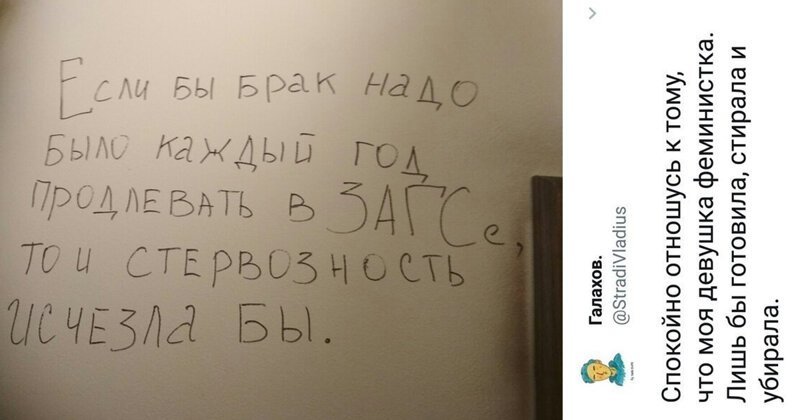 Если бы брак надо
было каждый год
продлевать в ЗАГСе,
то и стервозность
исчезла бы.
Галахов.
@StradiVladius
Спокойно отношусь к тому,
что моя девушка феминистка.
Лишь бы готовила, стирала и
убирала.